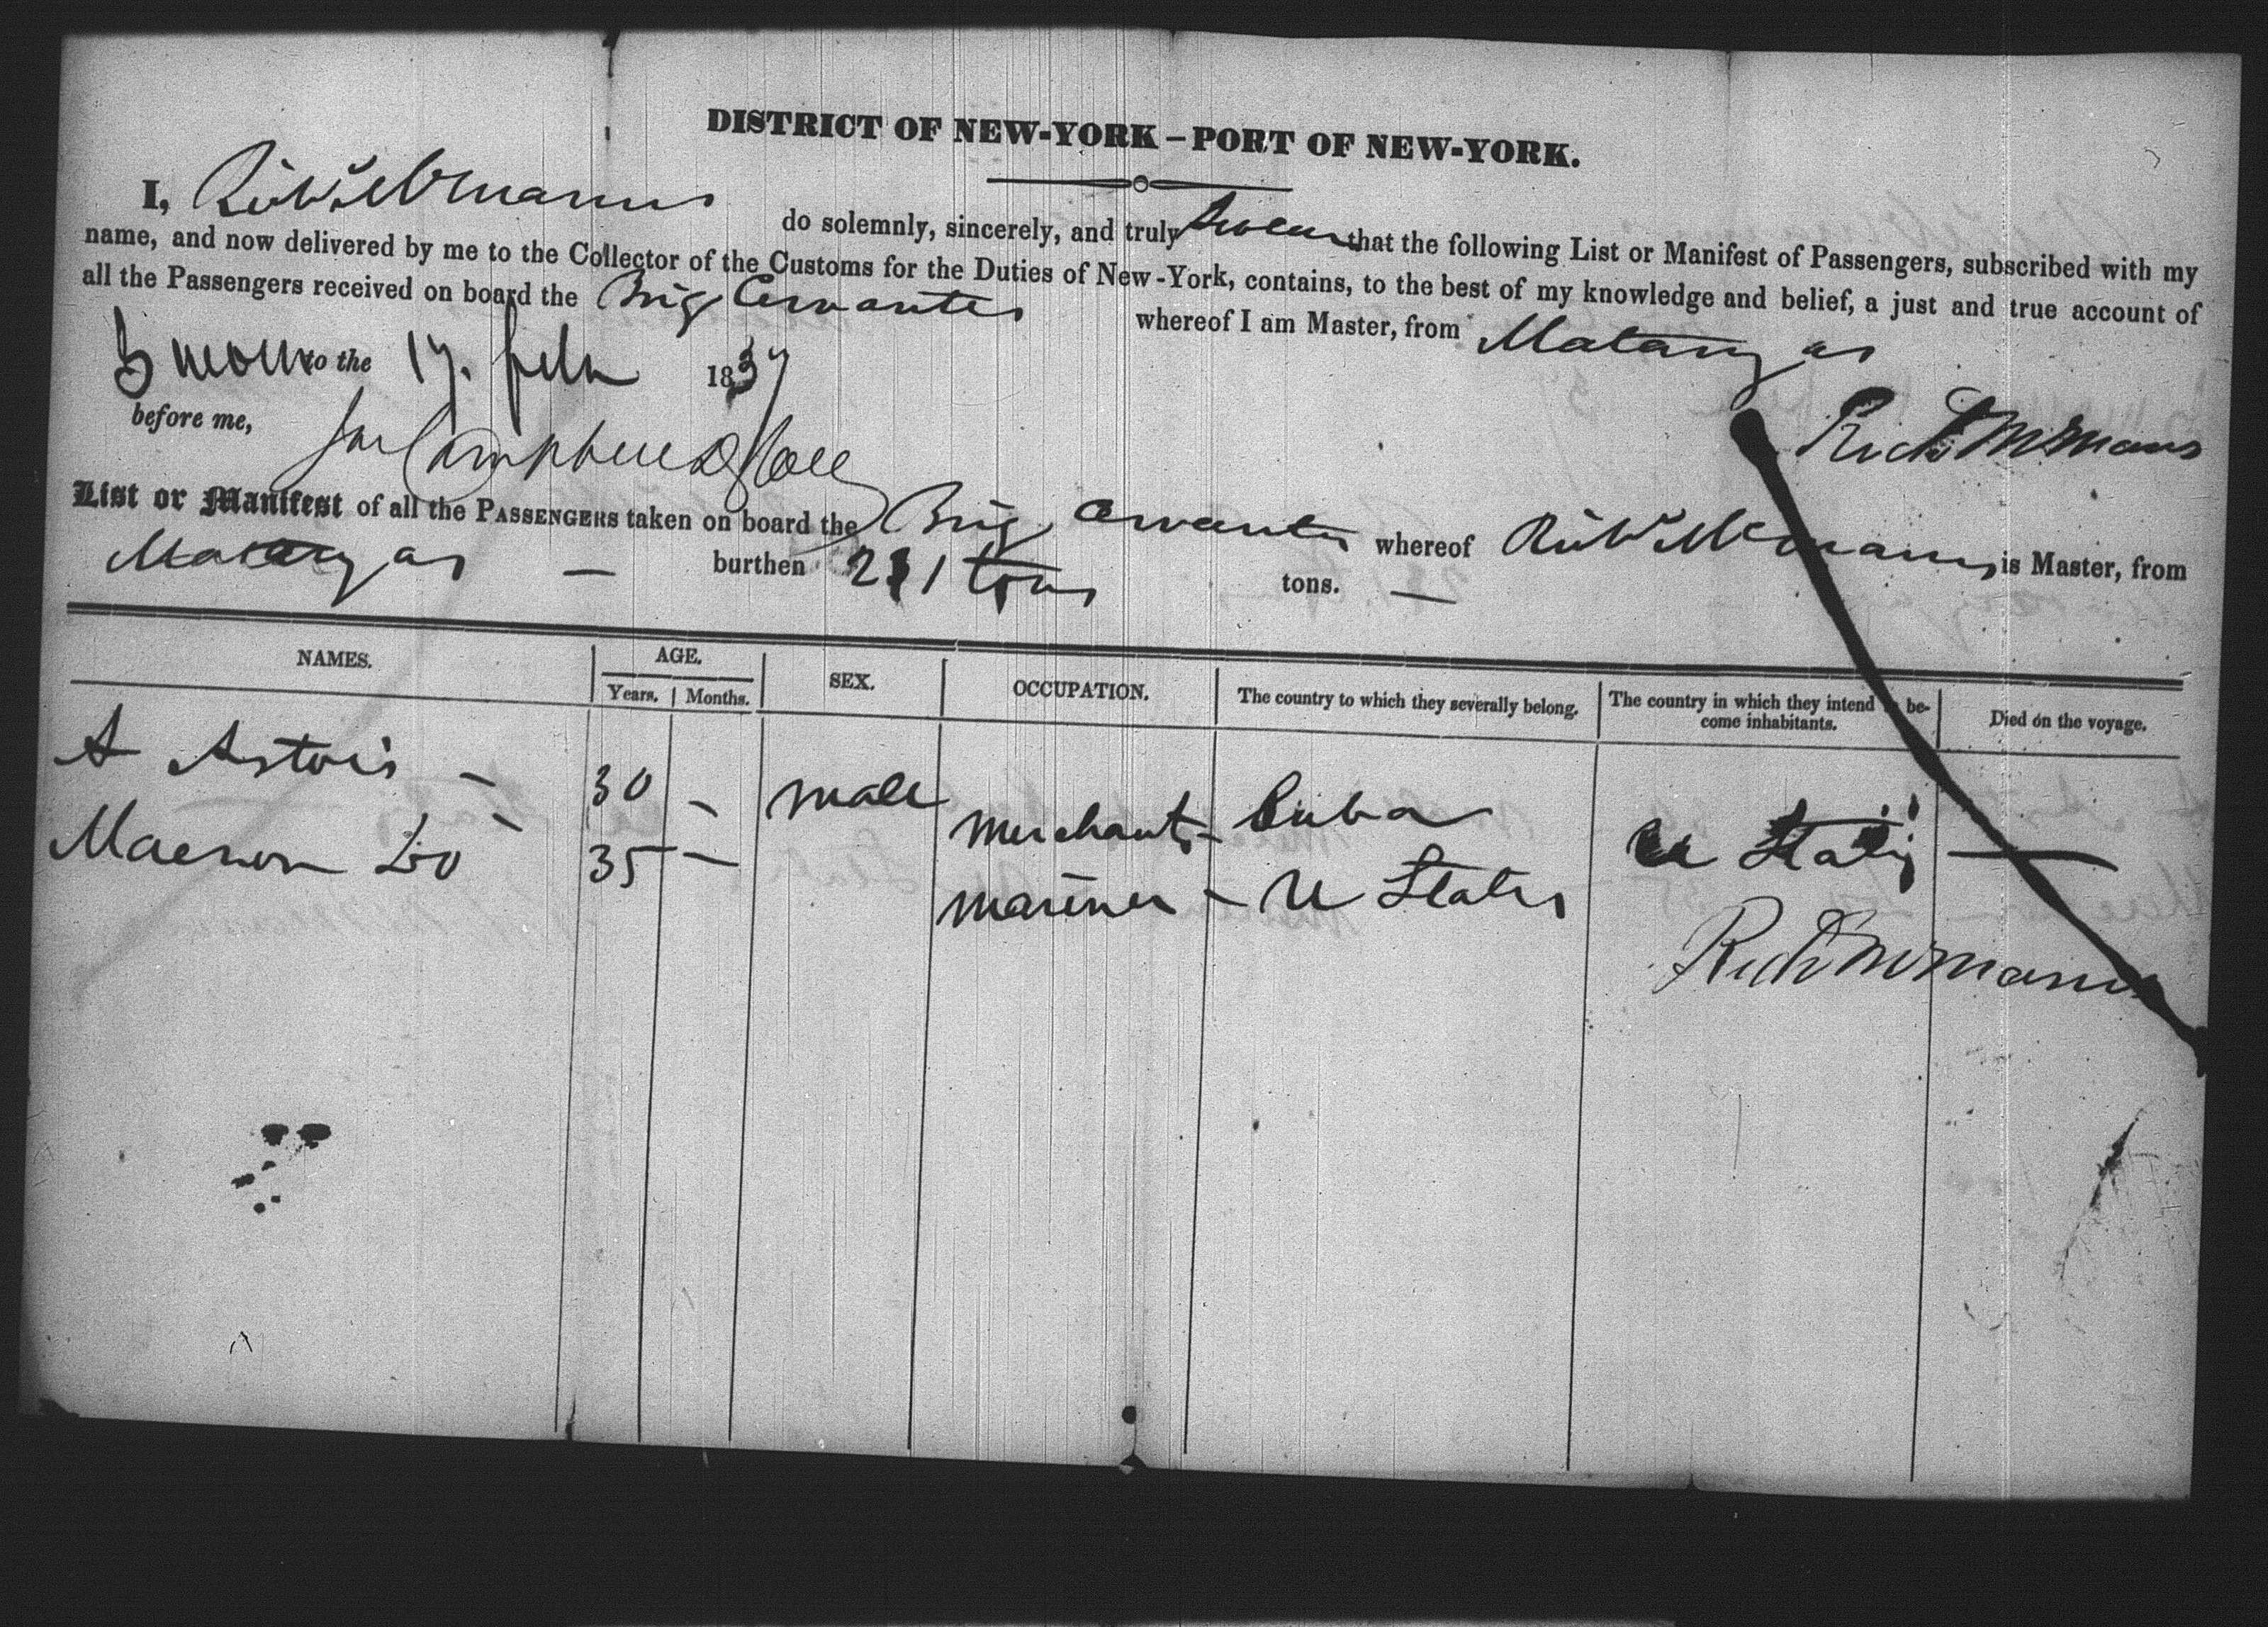 DISTRICT OF NEW-YORK – PORT OF NEW-YORK.
I, Richd McManus do solemnly, sincerely, and truly swear that the following List or Manifest of Passengers, subscribed with my
name, and now delivered by me to the Collector of the Customs for the Duties of New-York, contains, to the best of my knowledge and belief, a just and true account of
all the Passengers received on board the Brig Cervantes whereof I am Master, from Matanzas
Sworn to the 17. Feb 1837
before me, Campbell Richd McManus
List or Manifest of all the PASSENGERS taken on board the Brig Cervantes whereof Richd McManus is Master, from
Matanzas — burthen tons tons. —
NAMES. AGE. SEX. OCCUPATION. The country to which they severally belong. The country in which they intend be-come inhabitants. Died on the voyage.
Years. Months.
A – 30 – male Merchant – Cuba U States —
– 35 – mariner – U States
Richd McManus